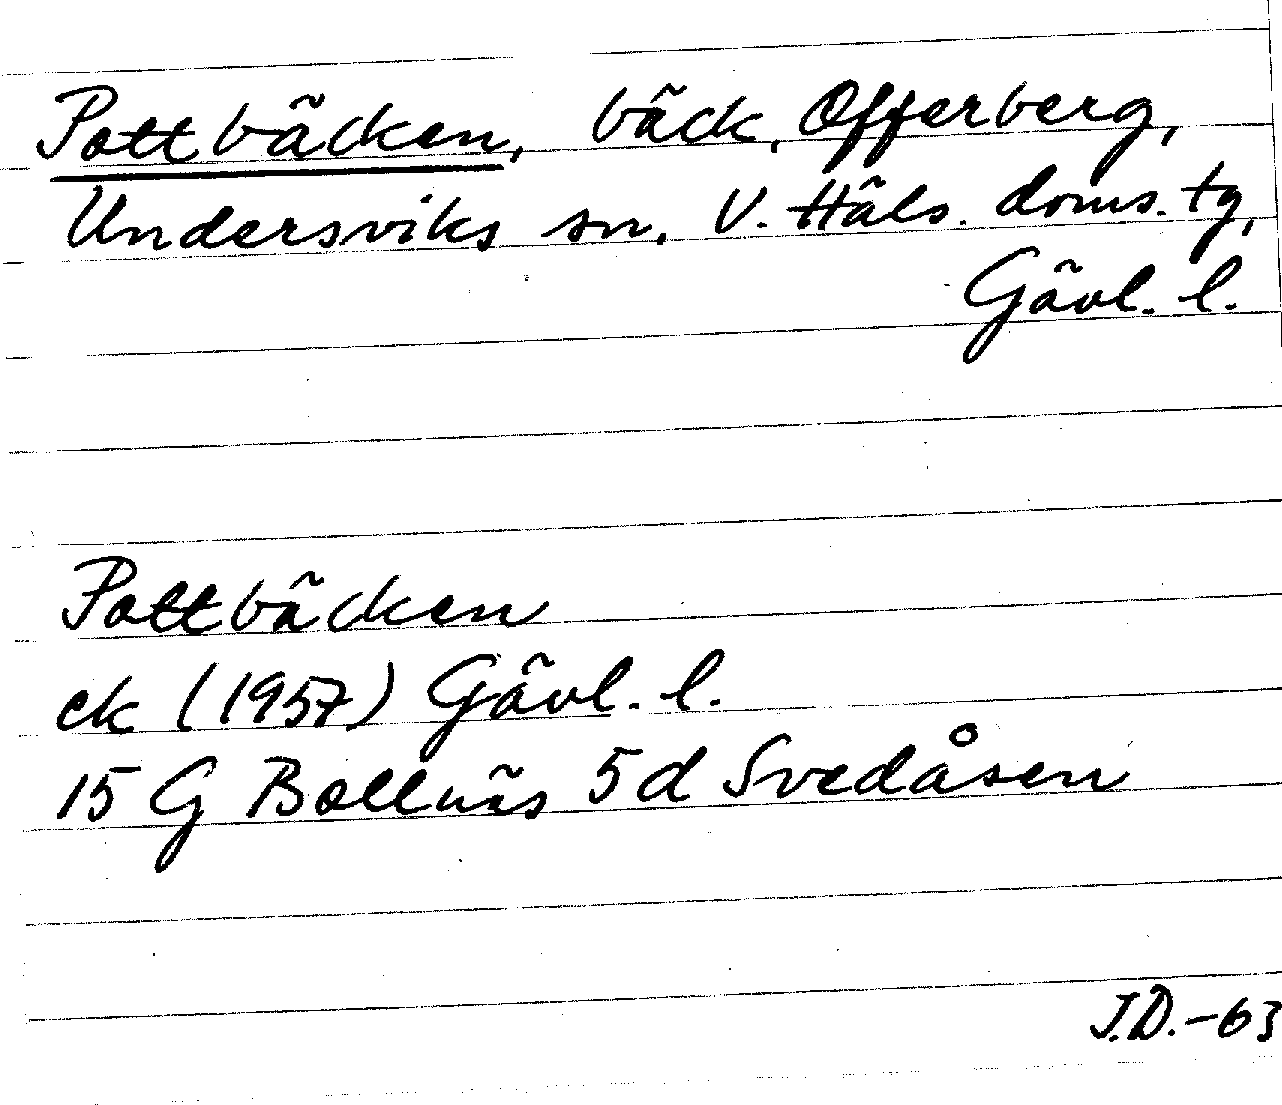 Pottbäcken, bäck, Offerberg,
Undersviks sn, V. Häls. doms. tg,
Gävl. l.
Pottbäcken
ek (1957) Gävl. l.
15 G Bollnäs 5d Svedåsen
J.D.-63